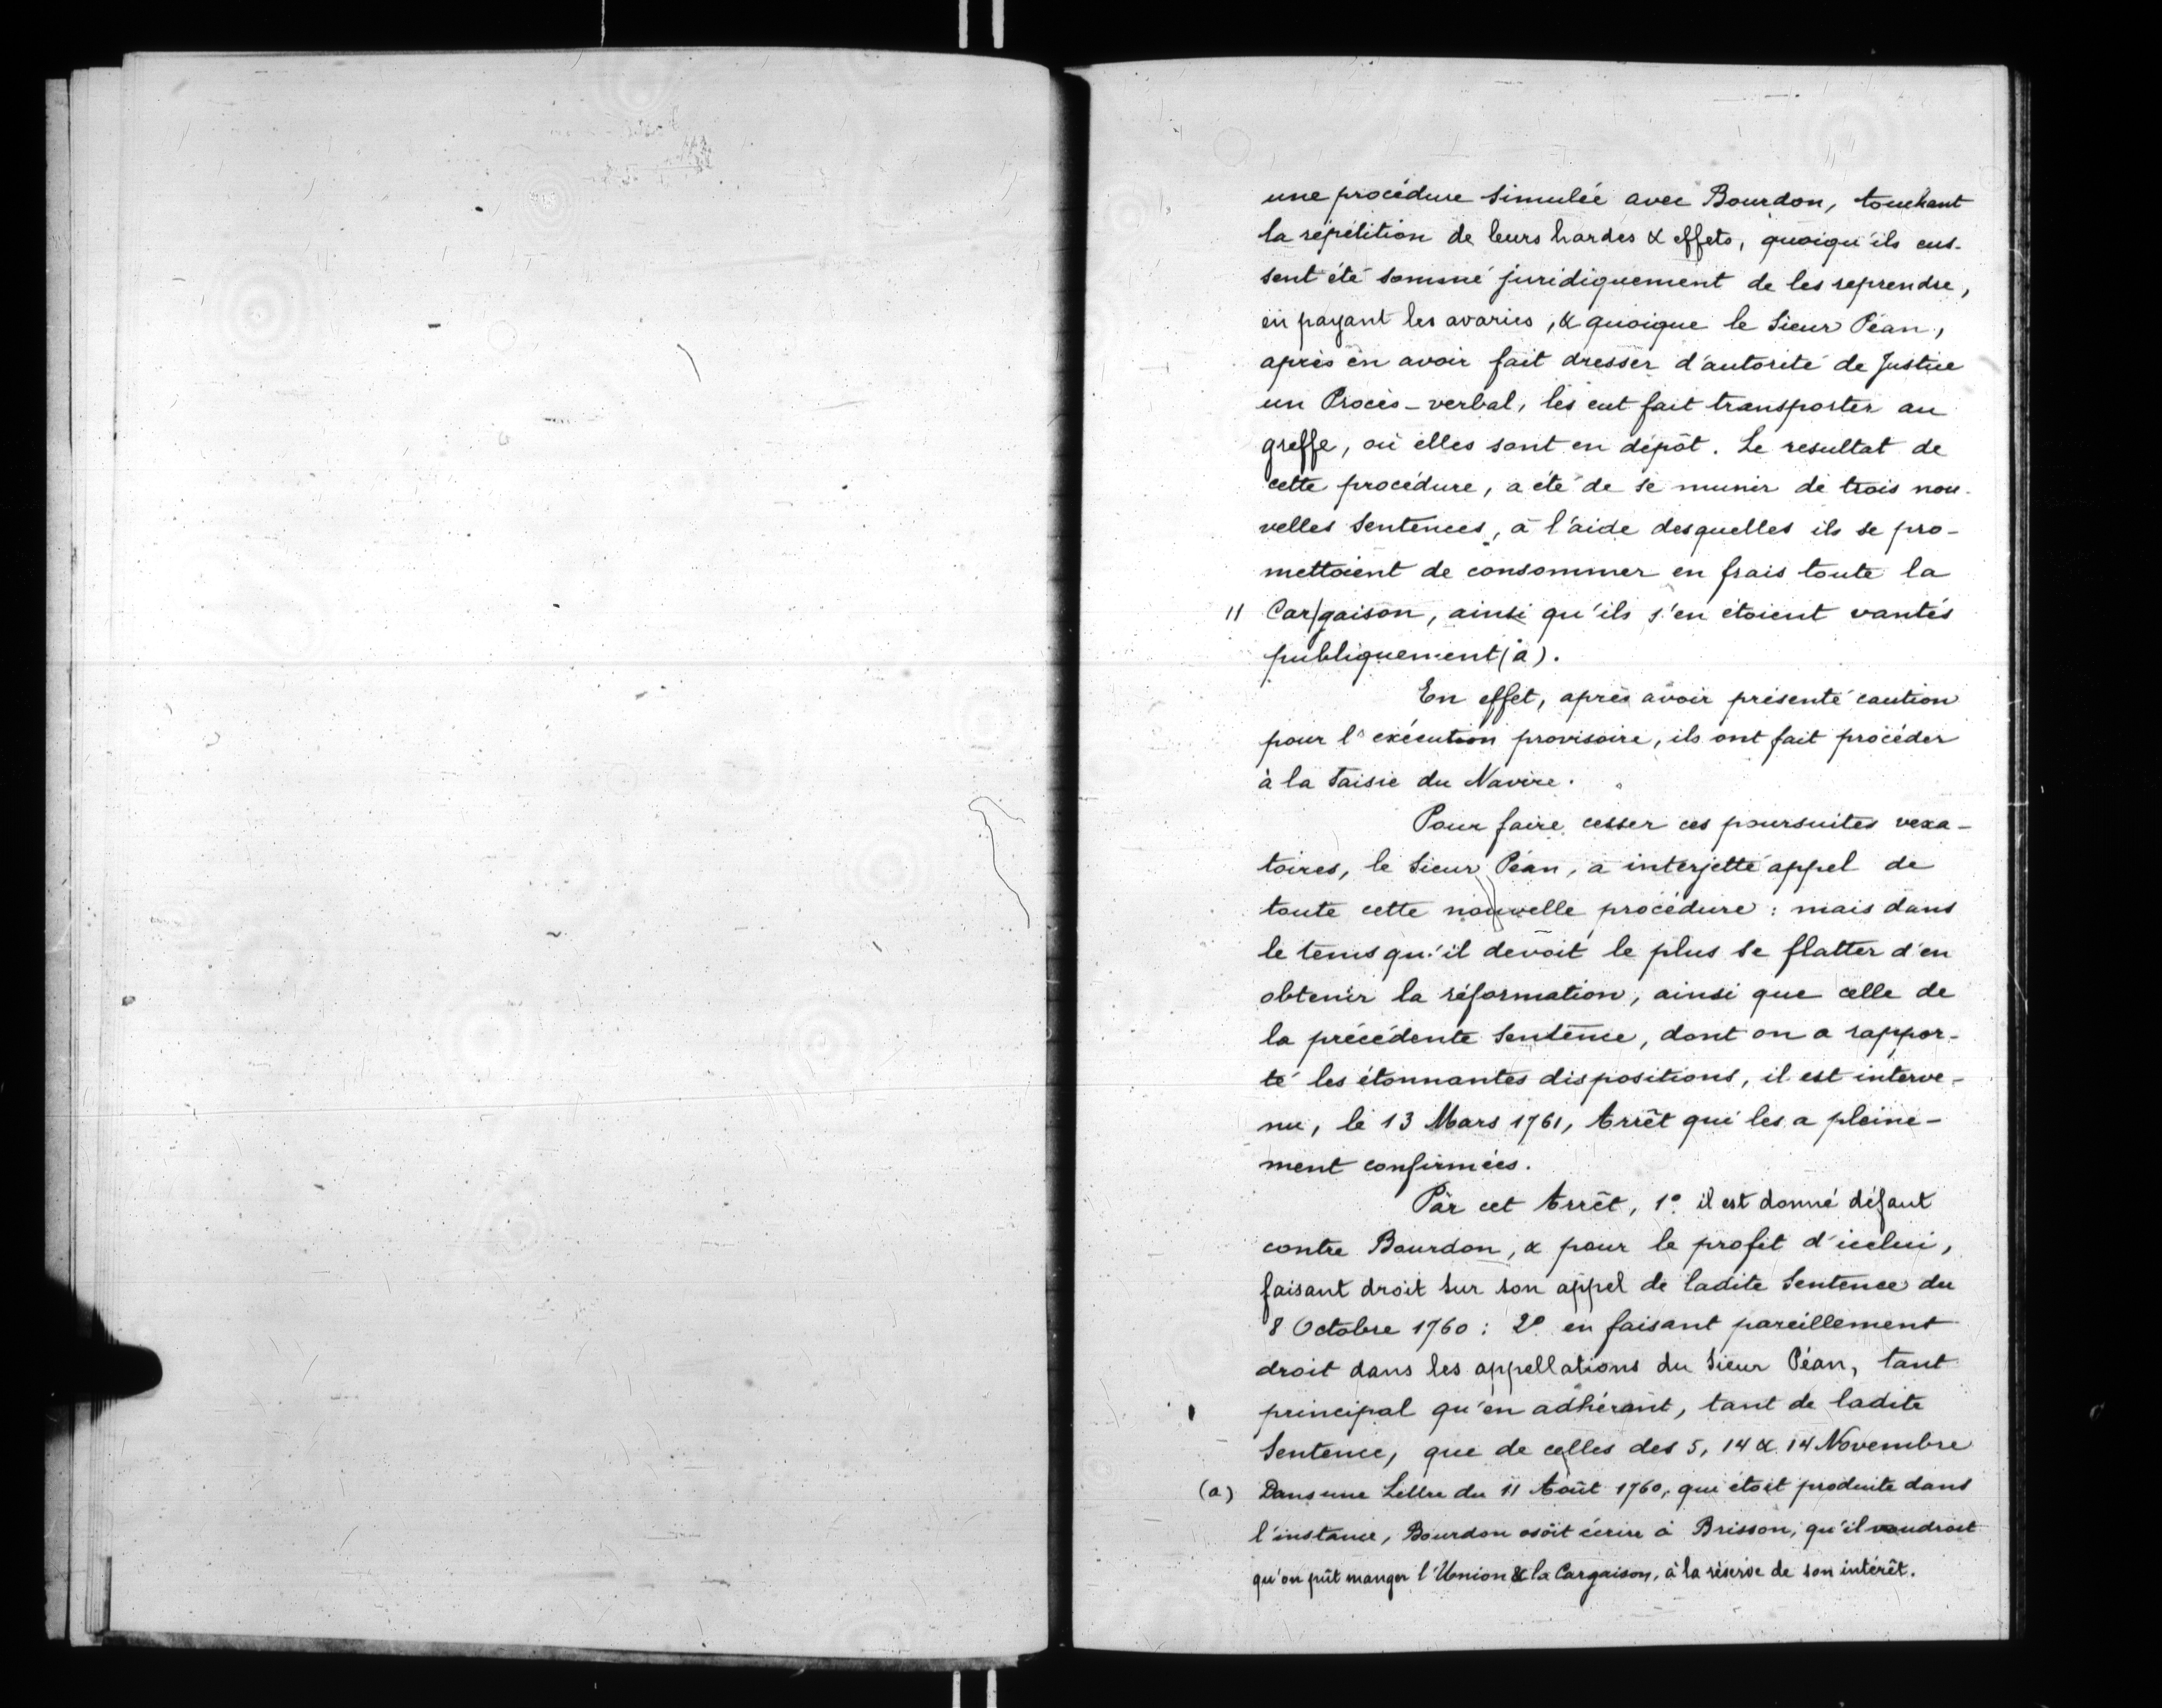 une procédure simulée avec Bourdon, touchant
la répétition de leurs hardes & effets, quoiqu'ils eus-
sent été sommé juridiquement de les reprendre,
en payant les avaries, & quoique le Sieur Péan,
après en avoir fait dresser d'autorité de Justice
un Procès-verbal, les eut fait transporter au
greffe, où elles sont en dépôt. Le resultat de
cette procédure, a été de se munir de trois nou-
velles Sentences, à l'aide desquelles ils se pro-
mettoient de consommer en frais toute la
11 Car/gaison, ainsi qu'ils s'en étoient vantés
publiquement (a).
En effet, après avoir présenté caution
pour l'exécution provisoire, ils ont fait procéder
à la Saisie du Navire.
Pour faire cesser ces poursuites vexa-
toires, le Sieur Péan, a interjetté appel de
toute cette nouvelle procédure : mais dans
le tems qu'il devoit le plus se flatter d'en
obtenir la réformation, ainsi que celle de
la précédente Sentence, dont on a rappor-
té les étonnantes dispositions, il est interve-
nu, le 13 Mars 1761, Arrêt qui les a pleine-
ment confirmées.
Par cet Arrêt, 1º il est donné défaut
contre Bourdon, & pour le profit d'icelui,
faisant droit sur son appel de ladite Sentence du
8 Octobre 1760 : 2º en faisant pareillement
droit dans les appellations du Sieur Péan, tant
principal qu'en adhérant, tant de ladite
Sentence, que de celles des 5, 14 & 14 Novembre
(a) Dans une Lettre du 11 Août 1760, qui étoit produite dans
l'instance, Bourdon osoit écrire à Brisson, qu'il voudroit
qu'on pût manger l'Union & la Cargaison, à la réserve de son intérêt.